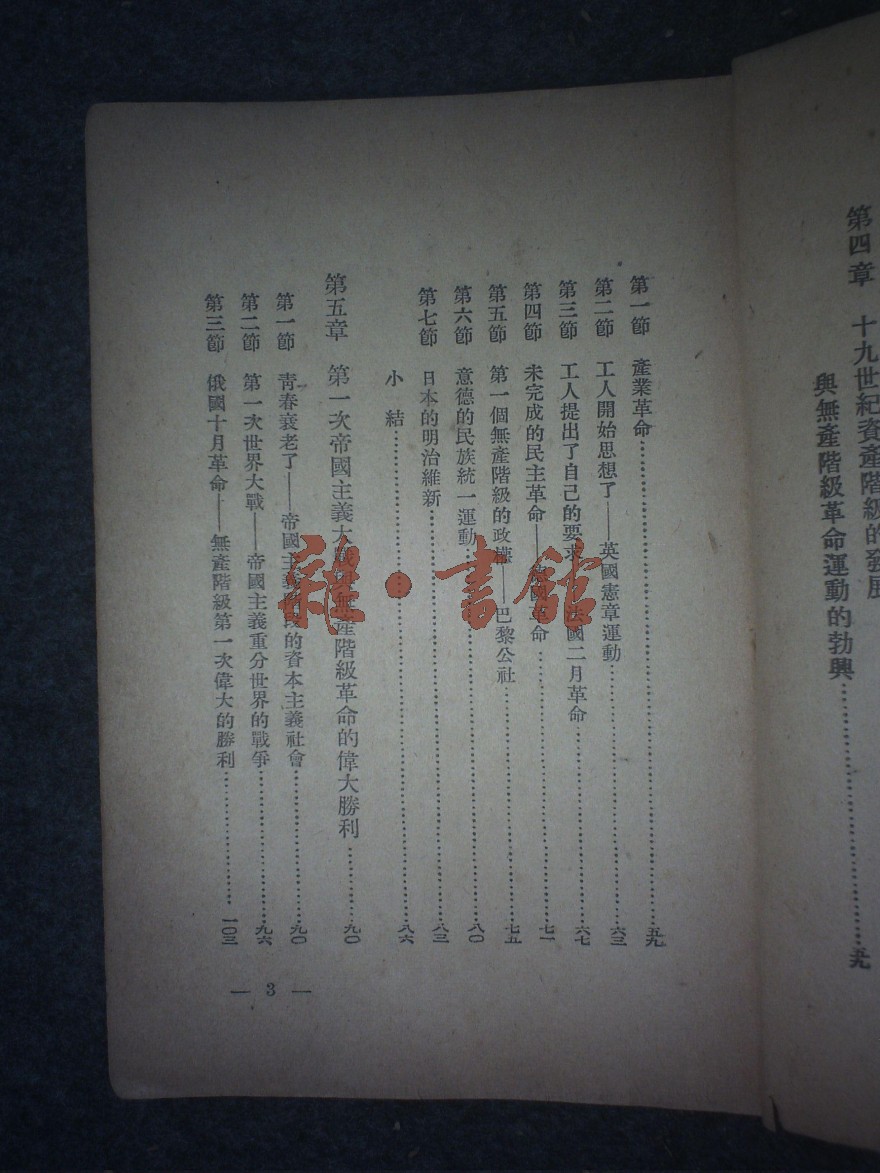 第四章 十九世紀資產階級的發展
與無產階級革命運動的勃興……………五九
第一節 產業革命……………五九
第二節 工人開始思想了——英國憲章運動……………六三
第三節 工人提出了自己的要求——法國二月革命……………六七
第四節 未完成的民主革命——德國革命……………七一
第五節 第一個無產階級的政權——巴黎公社……………七五
第六節 意德的民族統一運動……………八〇
第七節 日本的明治維新……………八三
小結……………八六
第五章 第一次帝國主義大戰與無產階級革命的偉大勝利……………九〇
第一節 青春衰老了——帝國主義階段的資本主義社會……………九〇
第二節 第一次世界大戰——帝國主義重分世界的戰爭……………九六
第三節 俄國十月革命——無產階級第一次偉大的勝利……………一〇三
— 3 —
雜·書館